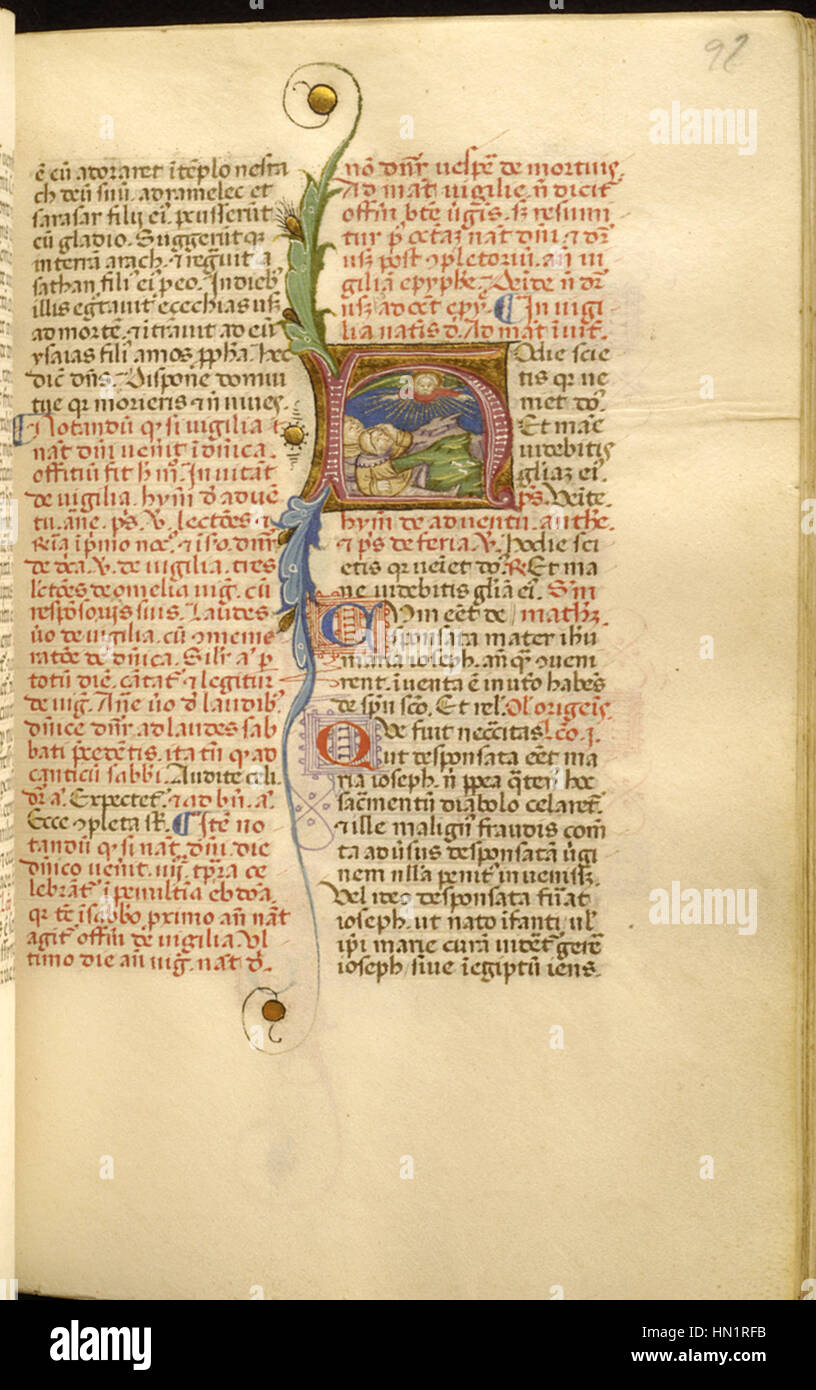 92
ē cū adoraret ī tēplo nesra
ch deū suū. adramelec et
sarasar filij eiꝰ. ꝑcusserūt
eū gladio. Suggerūt qꝫ
in terrā arach. ⁊ regnuit a
sathan filiꝰ eiꝰ ꝓ eo. In diebꝰ
illis egtauit ecechias usqꝫ
ad mortē. ⁊ ītrauit ad eū
ysaias filiꝰ amos ꝓpha. hec
dic dn̄s. Dispone domui
tue qr morieris ⁊ n̄ uiues.
Notandū qꝫ si uigilia ī
nat dn̄i uenit ī dn̄ica.
offitiū fit h̄ m̄. Inuitat
de uigilia. hymꝰ d aduē
tu. an̄e. ps. v̄. lectōes ⁊
de dc̄a. v̄. de uigilia. tres
lectōes de omelia uig. cū
responsorijs suis. Laudes
uo de uigilia. cū ⁊ memē
ratōe de dn̄ica. Silr a ꝑ
totū diē. cantat ⁊ legitur
de uig. An̄e uo d laudibꝰ
dn̄ice dn̄r ad laudes sab
bati ꝑcedentis. ita tn̄ qꝫ ad
canticū sabbi. Audite celi.
dr a. Expectet. ⁊ ad bn̄. a.
Ecce ⁊pleta st. Itē no
tandū qꝫ si nat dn̄i die
dn̄ico uenit. iiij. tꝑra ce
lebrant ī penultīa ebda.
qr tē ī sabbo primo an̄ nat
agit offm̄ de uigilia. Vl
timo die an̄ uig. nat d.
nō dn̄r uespe de mortuis.
Ad mat uigilie. n̄ dicit
offm̄ bte ūgis. sꝫ resumi
tur pꝰ octaꝫ nat dn̄i. ⁊ dr
usqꝫ post ⁊pletoriū. an̄ ui
giliā epyphe. Deīde n̄ dr
usqꝫ ad oct epy. In uigi
lia natis d. Ad mat īuit.
Hodie scie
tis qr ue
niet dō.
Et mae
uidebitis
gliaꝫ eiꝰ.
ps. Veīte.
hymꝰ de aduentu. anthe.
⁊ ps de feria. v̄. Hodie sci
etis qr ueiet dō. R. Et ma
ne uidebitis gliā eiꝰ. Sm
Cum eēt de mathꝫ.
sponsata mater ihu
maria ioseph. an̄ qꝫ ⁊ueni
rent. īuenta ē in uto habēs
de spū scō. Et rel. Ol origeīs.
Que fuit neccitas lco. j.
ut desponsata eēt ma
ria ioseph. n̄ ꝓpea qtenꝰ hoc
sacmentū diabolo celaret.
⁊ ille malignꝰ fraudis com
ta adūsus desponsatā ūgi
nem nulla penitꝰ inuenissꝫ.
Vel ideo desponsata fūat
ioseph. ut nato īfanti. ul
ipi marie curā uidet gerē
ioseph. siue ī egiptū iens.
alamy
alamy
alamy
alamy stock photo
HN1RFB
www.alamy.com